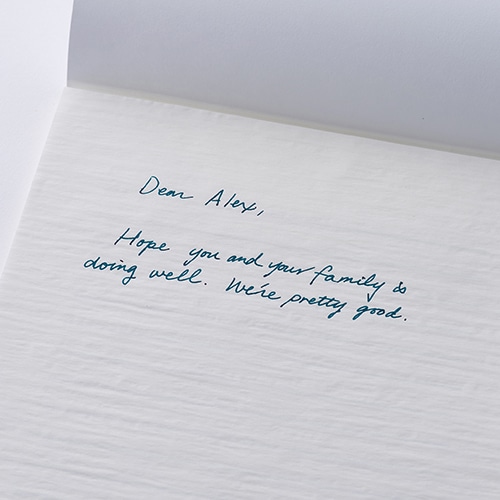 Dear Alex,
Hope you and your family is
doing well. We're pretty good.